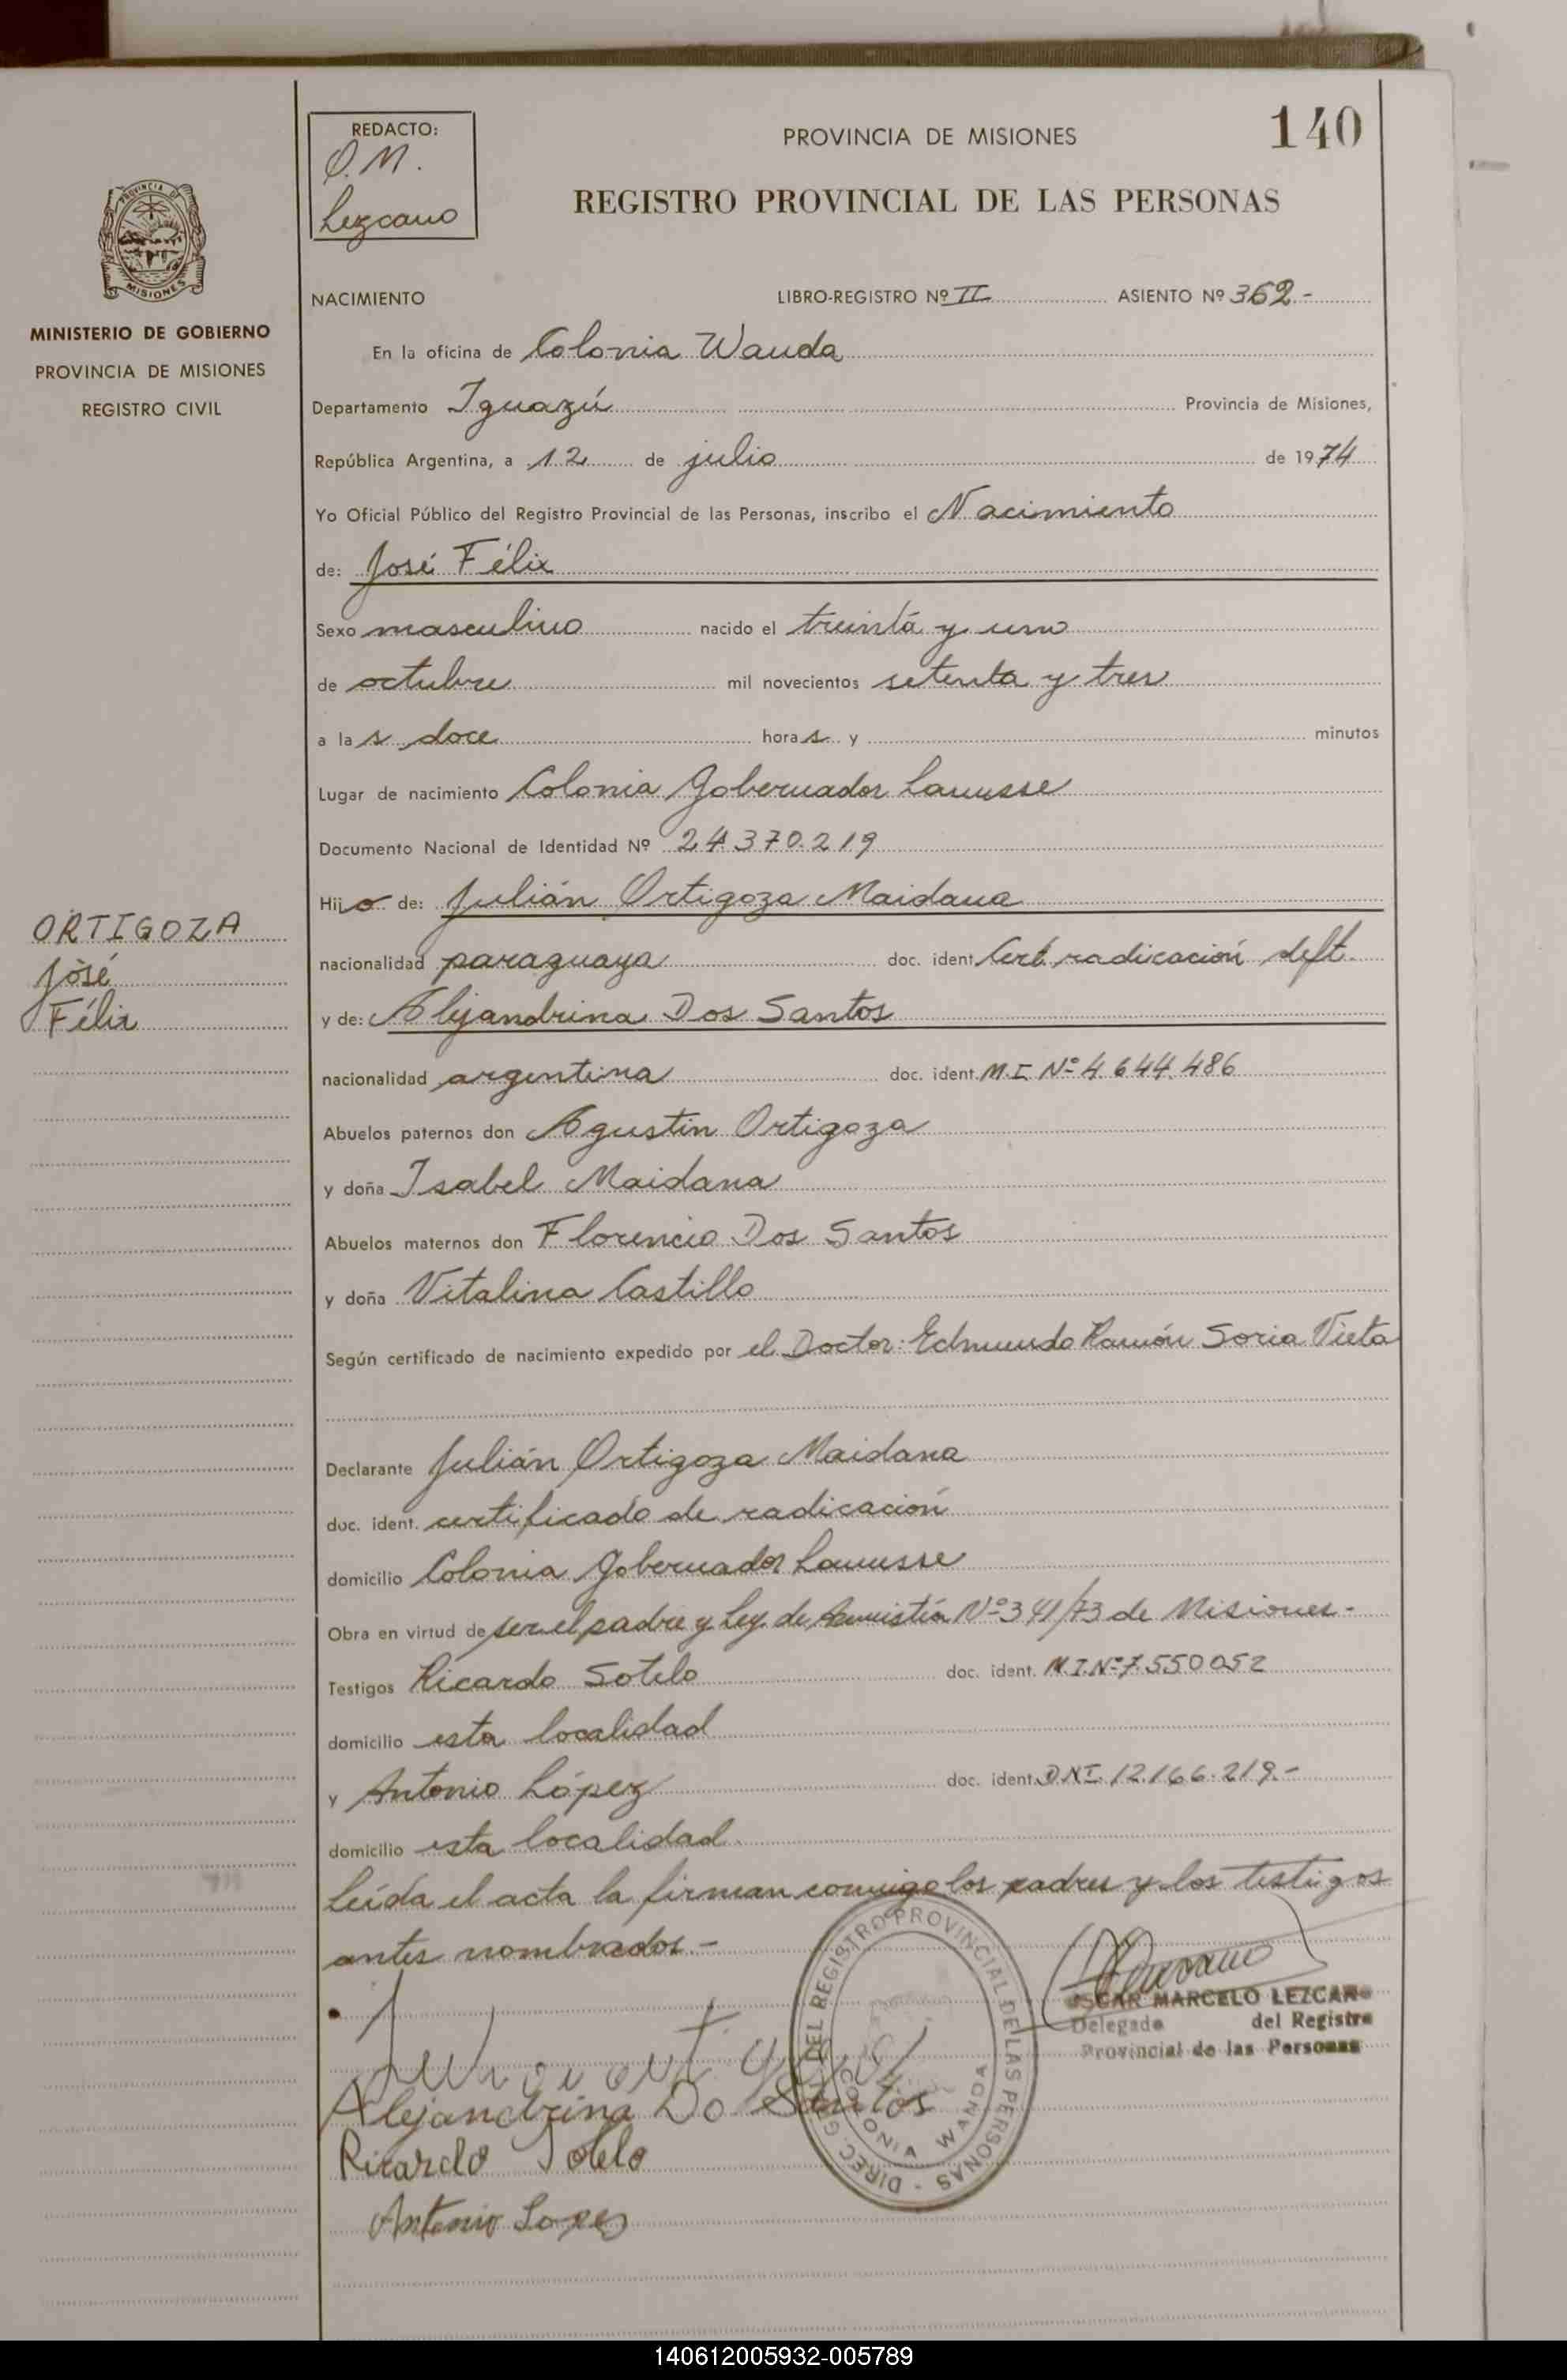 140
REDACTO:
O.M.
Lezcano
PROVINCIA DE MISIONES
REGISTRO PROVINCIAL DE LAS PERSONAS
PROVINCIA DE
MISIONES
MINISTERIO DE GOBIERNO
PROVINCIA DE MISIONES
REGISTRO CIVIL
NACIMIENTO LIBRO-REGISTRO Nº II ASIENTO Nº 362.-
En la oficina de Colonia Wanda
Departamento Iguazú Provincia de Misiones,
República Argentina, a 12 de julio de 1974
Yo Oficial Público del Registro Provincial de las Personas, inscribo el Nacimiento
de: José Félix
Sexo masculino nacido el treinta y uno
de octubre mil novecientos setenta y tres
a las doce horas y minutos
Lugar de nacimiento Colonia Gobernador Lanusse
Documento Nacional de Identidad Nº 24.370.219
Hijo de: Julián Ortigoza Maidana
ORTIGOZA
José
Félix
nacionalidad paraguaya doc. ident. Cert. radicación deft.
y de: Alejandrina Dos Santos
nacionalidad argentina doc. ident. M.I. Nº 4.644.486
Abuelos paternos don Agustin Ortigoza
y doña Isabel Maidana
Abuelos maternos don Florencio Dos Santos
y doña Vitalina Castillo
Según certificado de nacimiento expedido por el Doctor: Edmundo Ramón Soria Vieta
Declarante Julián Ortigoza Maidana
doc. ident. certificado de radicación
domicilio Colonia Gobernador Lanusse
Obra en virtud de ser el padre y Ley de Amnistía Nº 341/73 de Misiones.-
Testigos Ricardo Sotelo doc. ident. M.I.Nº 7.550.052
domicilio esta localidad
y Antonio López doc. ident. DNI. 12.166.219.-
domicilio esta localidad
Leída el acta la firman conmigo los padres y los testigos
antes nombrados.-
DIREC. G. DEL REGISTRO PROVINCIAL DE LAS PERSONAS -
COLONIA WANDA
OSCAR MARCELO LEZCANO
Delegado del Registro
Provincial de las Personas
Alejandrina Do Santos
Ricardo Sotelo
Antonio Lopez
140612005932-005789